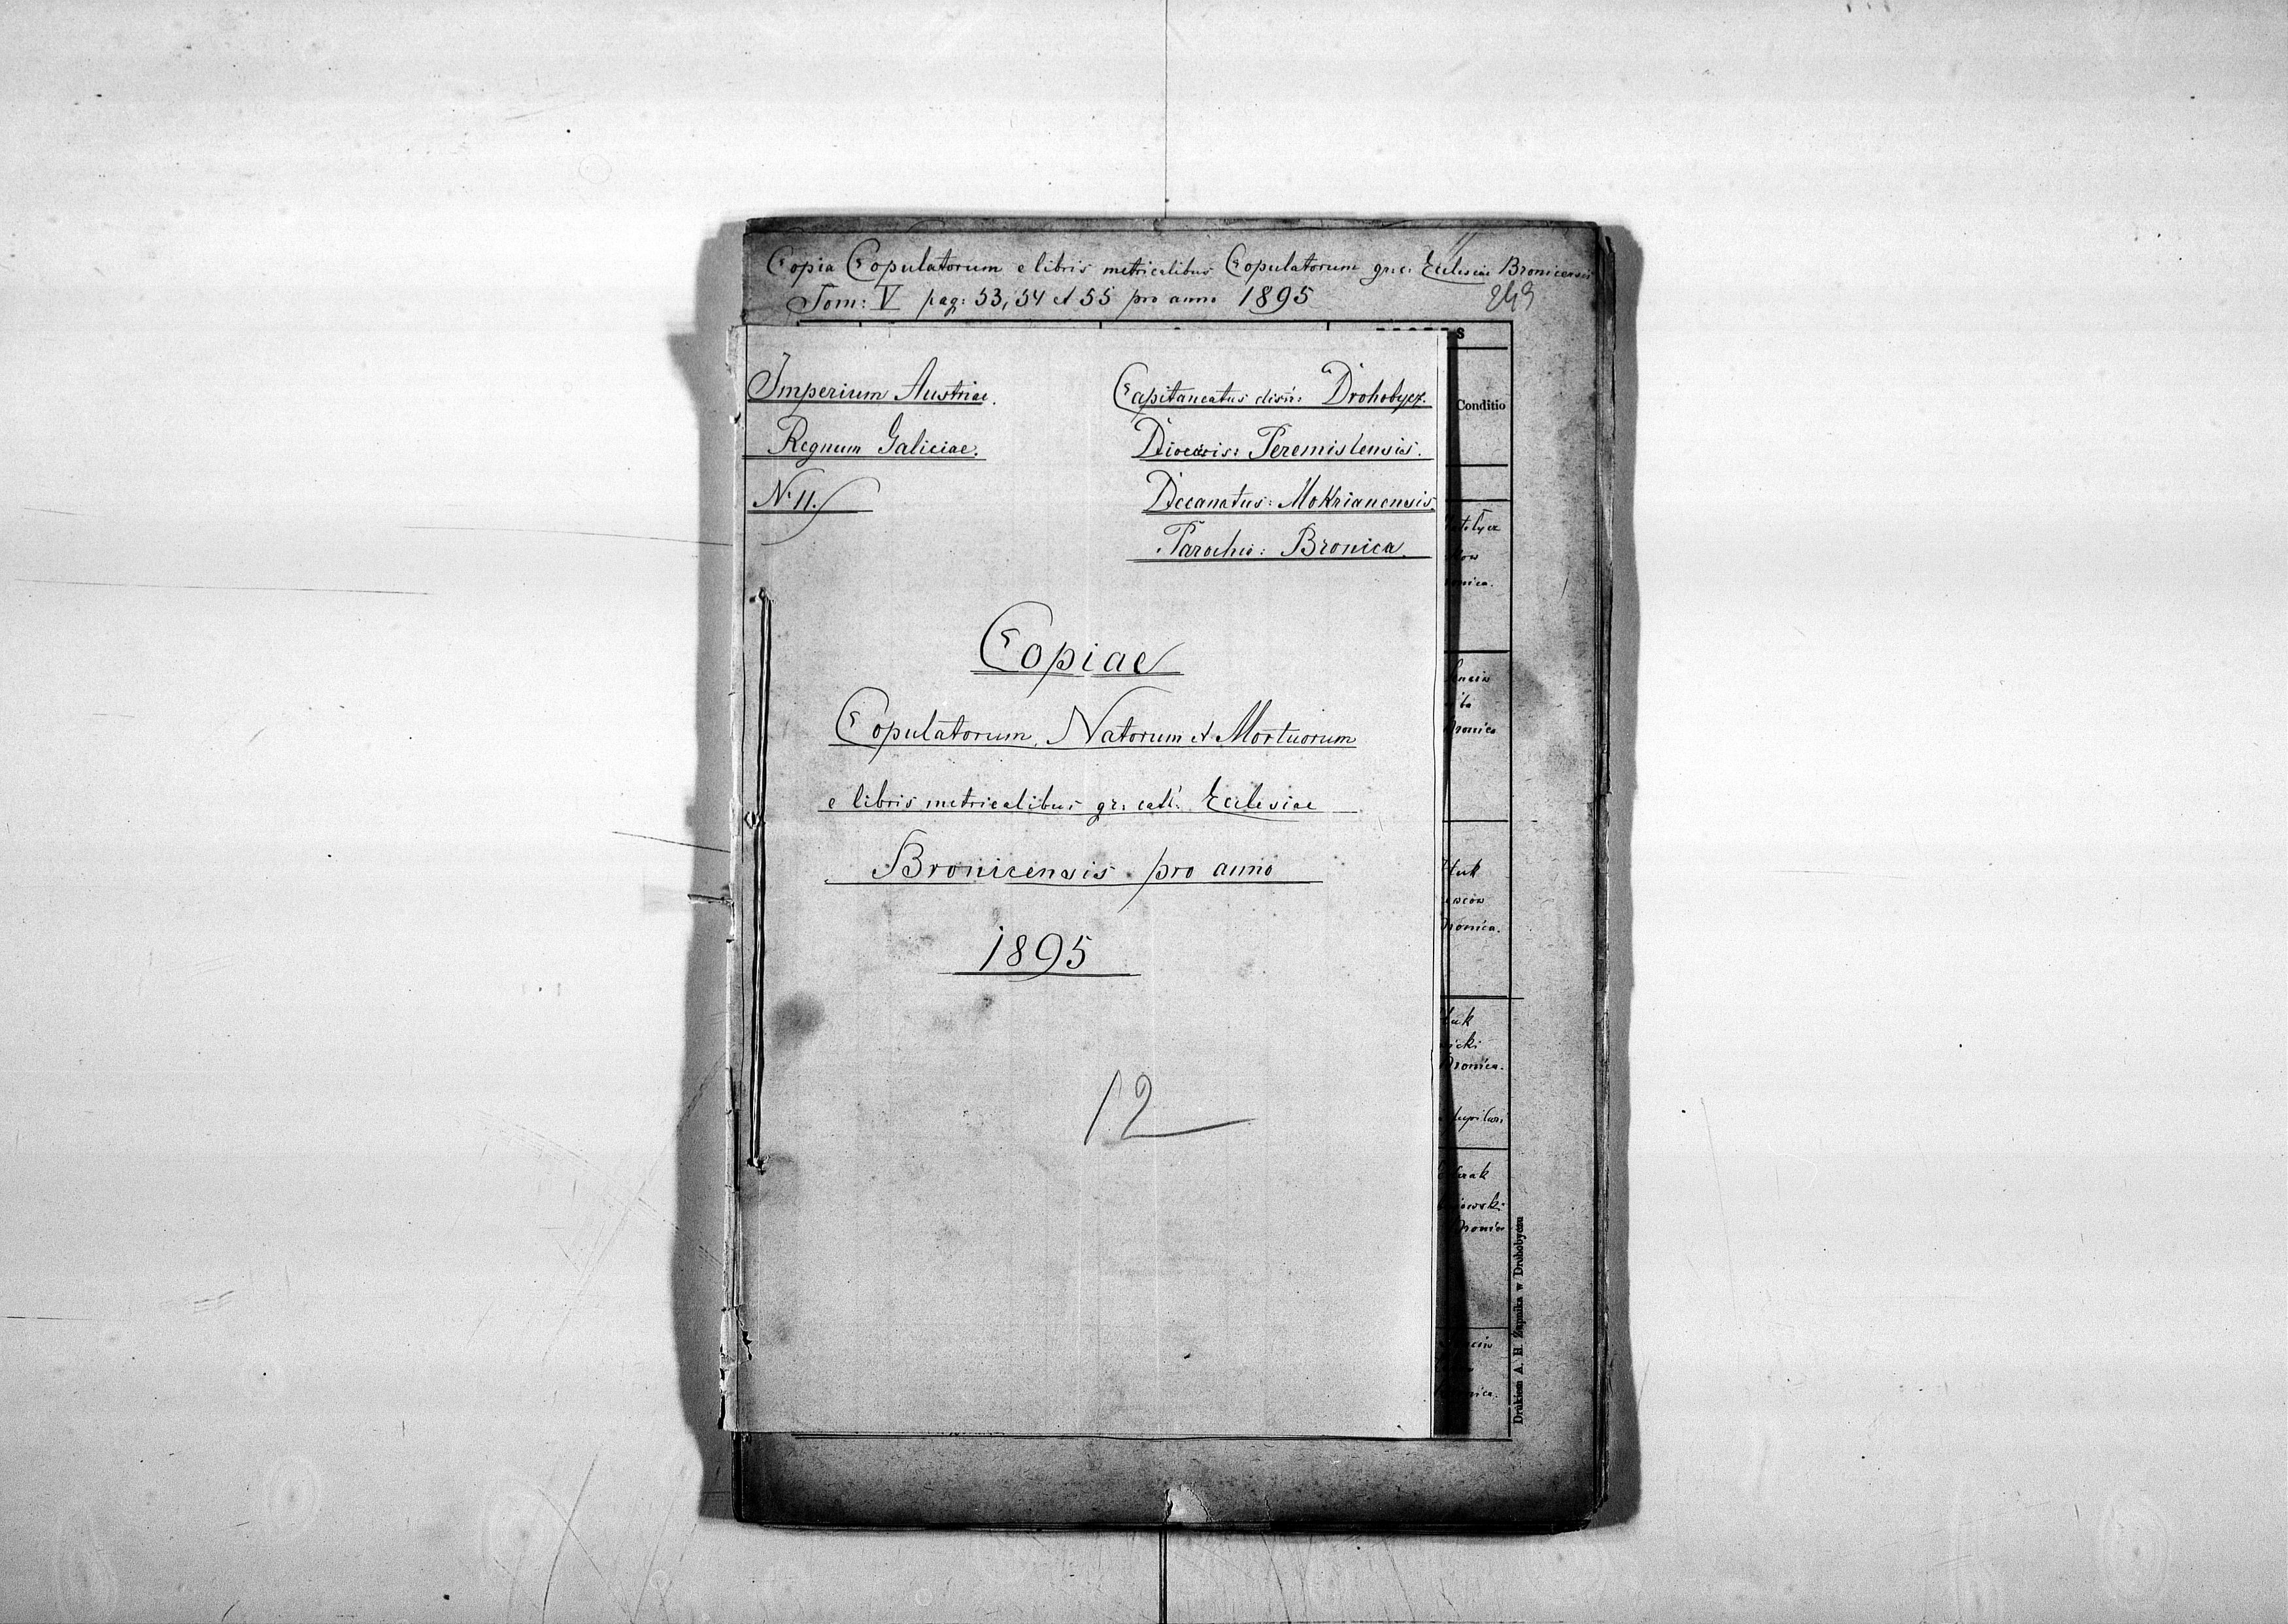 Copia Copulatorum e libris metricalibus Copulatorum gr: c: Ecclesiae Bronicensis
Tom: V pag: 53, 54 et 55 pro anno 1895
249
Imperium Austriae.
Regnum Galiciae.
N. 11.
Capitaneatus distr: Drohobycz.
Diocesis: Peremislensis.
Decanatus: Mokrianensis.
Parochia: Bronica.
Copiae
Copulatorum, Natorum et Mortuorum
e libris metricalibus gr: cath: Ecclesiae
Bronicensis pro anno
1895
12
Conditio
Drukiem A. H. Żupnika w Drohobyczu